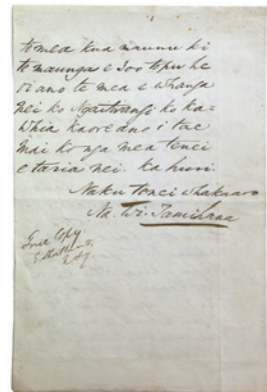 te mea kua maunu ki
te maunga e 300 topu he
oi ano te mea e whanga
nei ko Ngaiterangi ko Ka=
whia kaore ano i tae
mai ko nga mea tenei
e taria nei. ka huri.
Naku tenei whakaaro
Na. Wi. Tamihana
True Copy